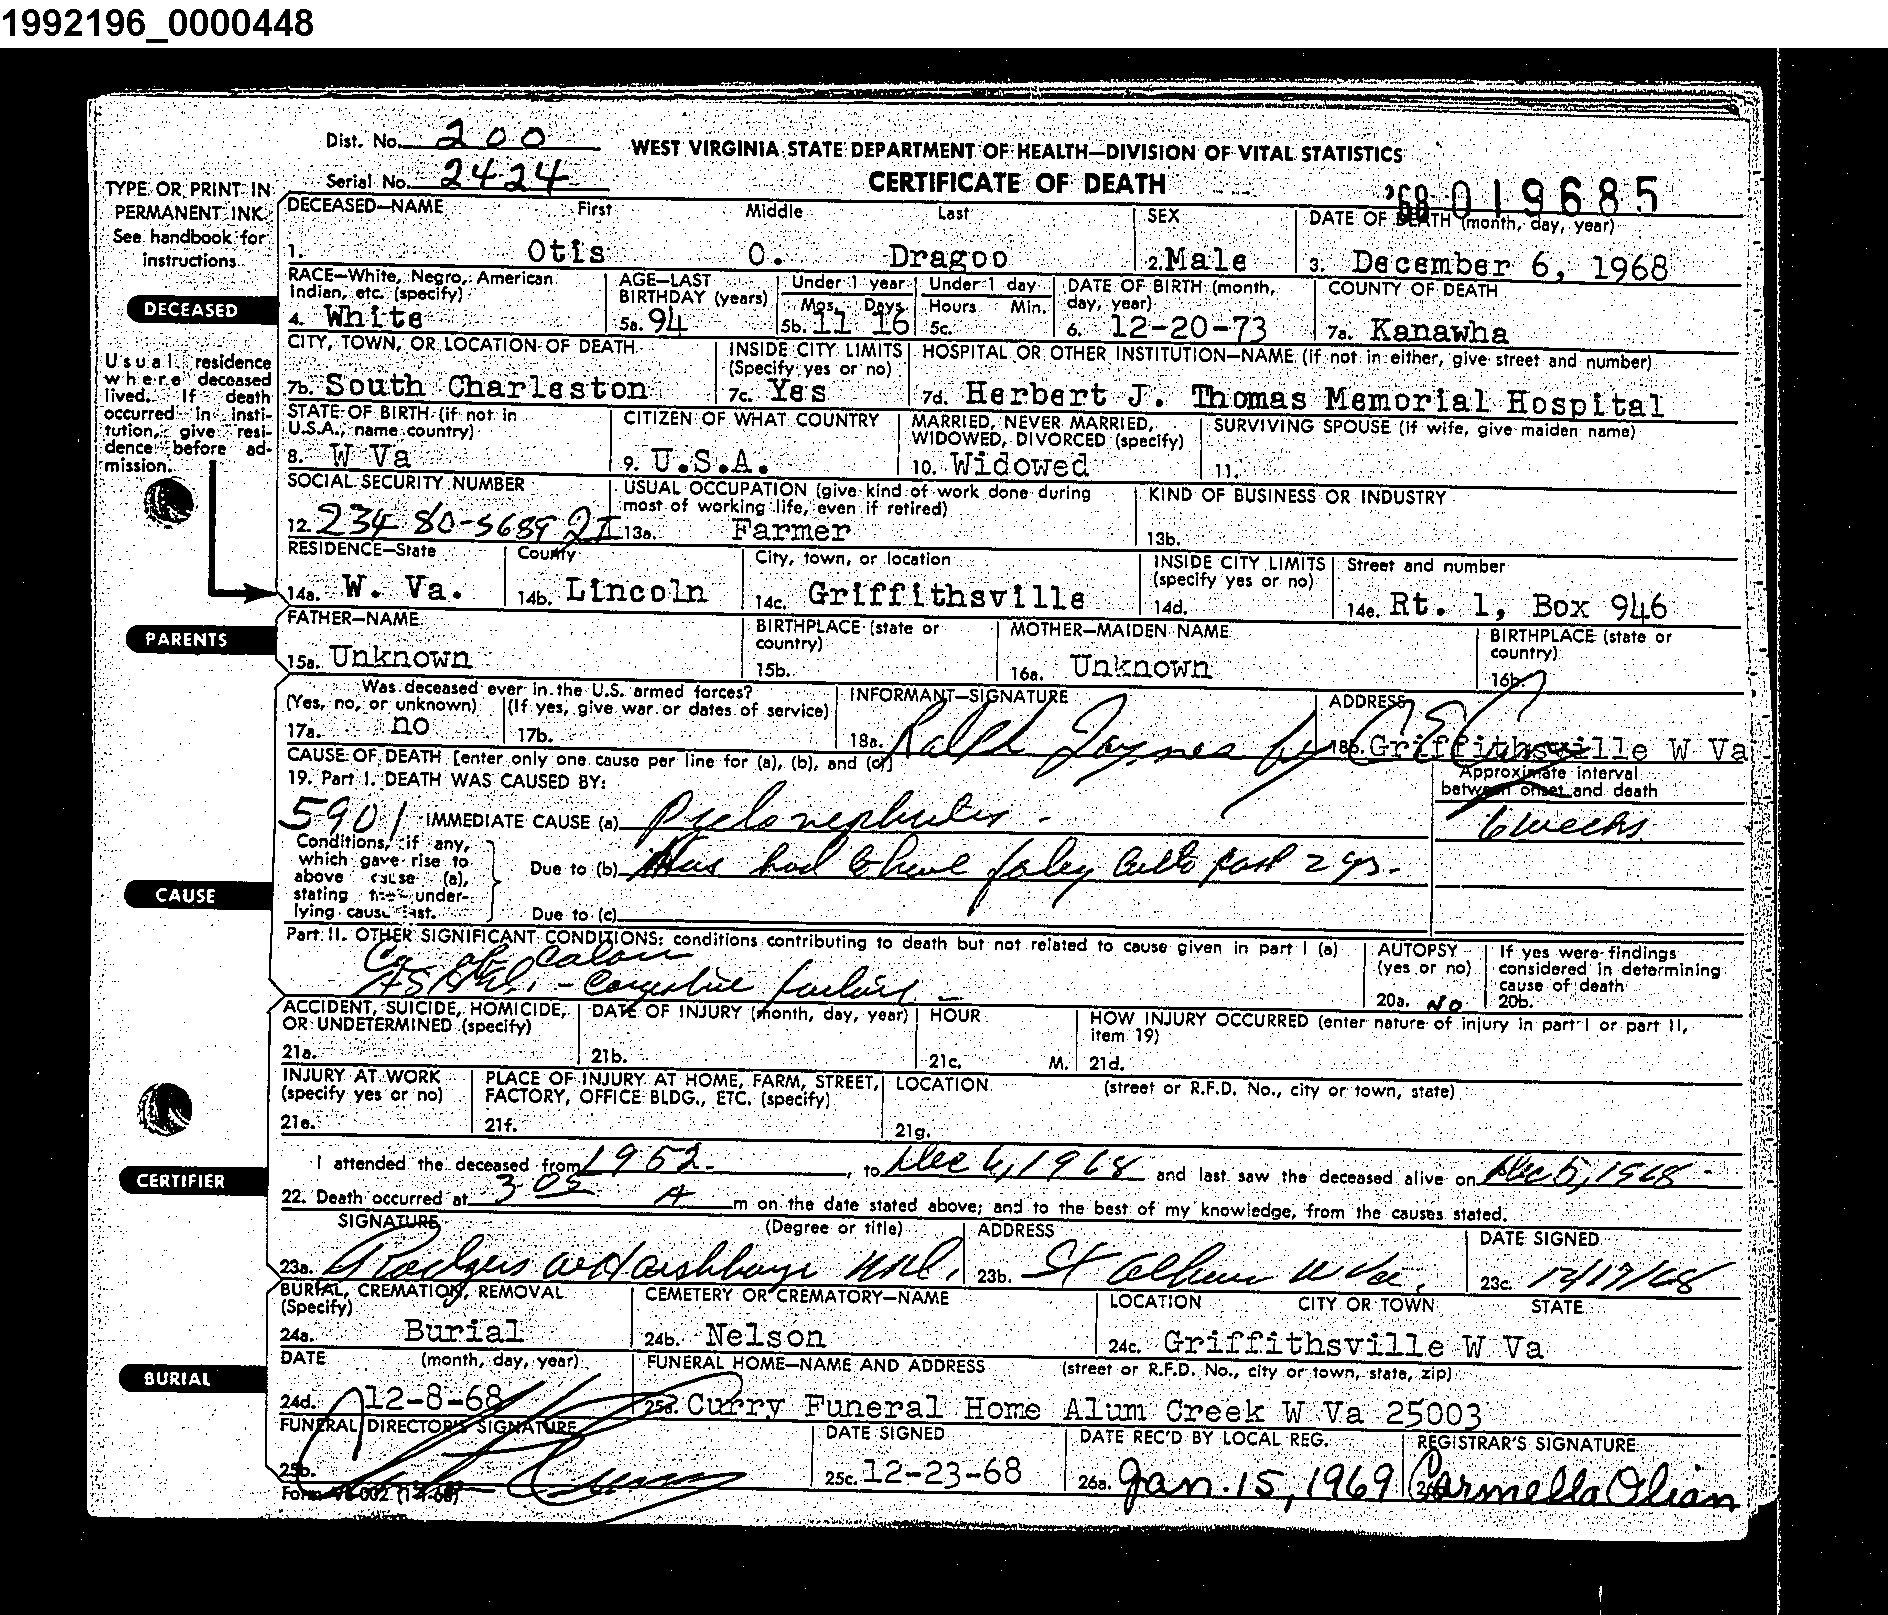 1992196_0000448
Dist. No. 200
WEST VIRGINIA STATE DEPARTMENT OF HEALTH—DIVISION OF VITAL STATISTICS
Serial No. 2424
CERTIFICATE OF DEATH
'68 019685
TYPE OR PRINT IN
PERMANENT INK
See handbook for
instructions.
DECEASED—NAME First Middle Last
1. Otis O. Dragoo
SEX
2. Male
DATE OF DEATH (month, day, year)
3. December 6, 1968
DECEASED
RACE—White, Negro, American
Indian, etc. (specify)
4. White
AGE—LAST
BIRTHDAY (years)
5a. 94
Under 1 year
Mos. Days
5b. 11 16
Under 1 day
Hours Min.
5c.
DATE OF BIRTH (month,
day, year)
6. 12-20-73
COUNTY OF DEATH
7a. Kanawha
Usual residence
where deceased
lived. If death
occurred in insti-
tution, give resi-
dence before ad-
mission.
CITY, TOWN, OR LOCATION OF DEATH
7b. South Charleston
INSIDE CITY LIMITS
(Specify yes or no)
7c. Yes
HOSPITAL OR OTHER INSTITUTION—NAME (if not in either, give street and number)
7d. Herbert J. Thomas Memorial Hospital
STATE OF BIRTH (if not in
U.S.A., name country)
8. W Va
CITIZEN OF WHAT COUNTRY
9. U.S.A.
MARRIED, NEVER MARRIED,
WIDOWED, DIVORCED (specify)
10. Widowed
SURVIVING SPOUSE (if wife, give maiden name)
11.
SOCIAL SECURITY NUMBER
12. 234 80-5689
USUAL OCCUPATION (give kind of work done during
most of working life, even if retired)
13a. Farmer
KIND OF BUSINESS OR INDUSTRY
13b.
RESIDENCE—State
14a. W. Va.
County
14b. Lincoln
City, town, or location
14c. Griffithsville
INSIDE CITY LIMITS
(specify yes or no)
14d.
Street and number
14e. Rt. 1, Box 946
PARENTS
FATHER—NAME
15a. Unknown
BIRTHPLACE (state or
country)
15b.
MOTHER—MAIDEN NAME
16a. Unknown
BIRTHPLACE (state or
country)
16b.
Was deceased ever in the U.S. armed forces?
(Yes, no, or unknown) (If yes, give war or dates of service)
17a. no 17b.
INFORMANT—SIGNATURE
18a. Ralph Jaynes by
ADDRESS
18b. Griffithsville W Va
CAUSE OF DEATH [enter only one cause per line for (a), (b), and (c)]
19. Part I. DEATH WAS CAUSED BY:
Approximate interval
between onset and death
5901 IMMEDIATE CAUSE (a) Pyelonephritis - 6 weeks
CAUSE
Conditions, if any,
which gave rise to
above cause (a),
stating the under-
lying cause last.
Due to (b) Has had to have foley past 2 yrs.
Due to (c)
Part II. OTHER SIGNIFICANT CONDITIONS: conditions contributing to death but not related to cause given in part I (a)
Ca of Colon
- Congestive failure -
AUTOPSY
(yes or no)
20a. No
If yes were findings
considered in determining
cause of death
20b.
ACCIDENT, SUICIDE, HOMICIDE,
OR UNDETERMINED (specify)
21a.
DATE OF INJURY (month, day, year)
21b.
HOUR
21c. M.
HOW INJURY OCCURRED (enter nature of injury in part I or part II,
item 19)
21d.
INJURY AT WORK
(specify yes or no)
21e.
PLACE OF INJURY AT HOME, FARM, STREET,
FACTORY, OFFICE BLDG., ETC. (specify)
21f.
LOCATION (street or R.F.D. No., city or town, state)
21g.
CERTIFIER
I attended the deceased from 1952, to Dec 6, 1968 and last saw the deceased alive on Dec 5, 1968
22. Death occurred at 3 05 A m on the date stated above; and to the best of my knowledge, from the causes stated.
SIGNATURE (Degree or title)
23a. Harshbarger M.D.
ADDRESS
23b. St Albans W Va.
DATE SIGNED
23c. 12/17/68
BURIAL
BURIAL, CREMATION, REMOVAL
(Specify)
24a. Burial
CEMETERY OR CREMATORY—NAME
24b. Nelson
LOCATION CITY OR TOWN STATE
24c. Griffithsville W Va
DATE (month, day, year)
24d. 12-8-68
FUNERAL HOME—NAME AND ADDRESS (street or R.F.D. No., city or town, state, zip)
25a. Curry Funeral Home Alum Creek W Va 25003
FUNERAL DIRECTOR'S SIGNATURE
25b.
DATE SIGNED
25c. 12-23-68
DATE REC'D BY LOCAL REG.
26a. Jan. 15, 1969
REGISTRAR'S SIGNATURE
Carmella Olian